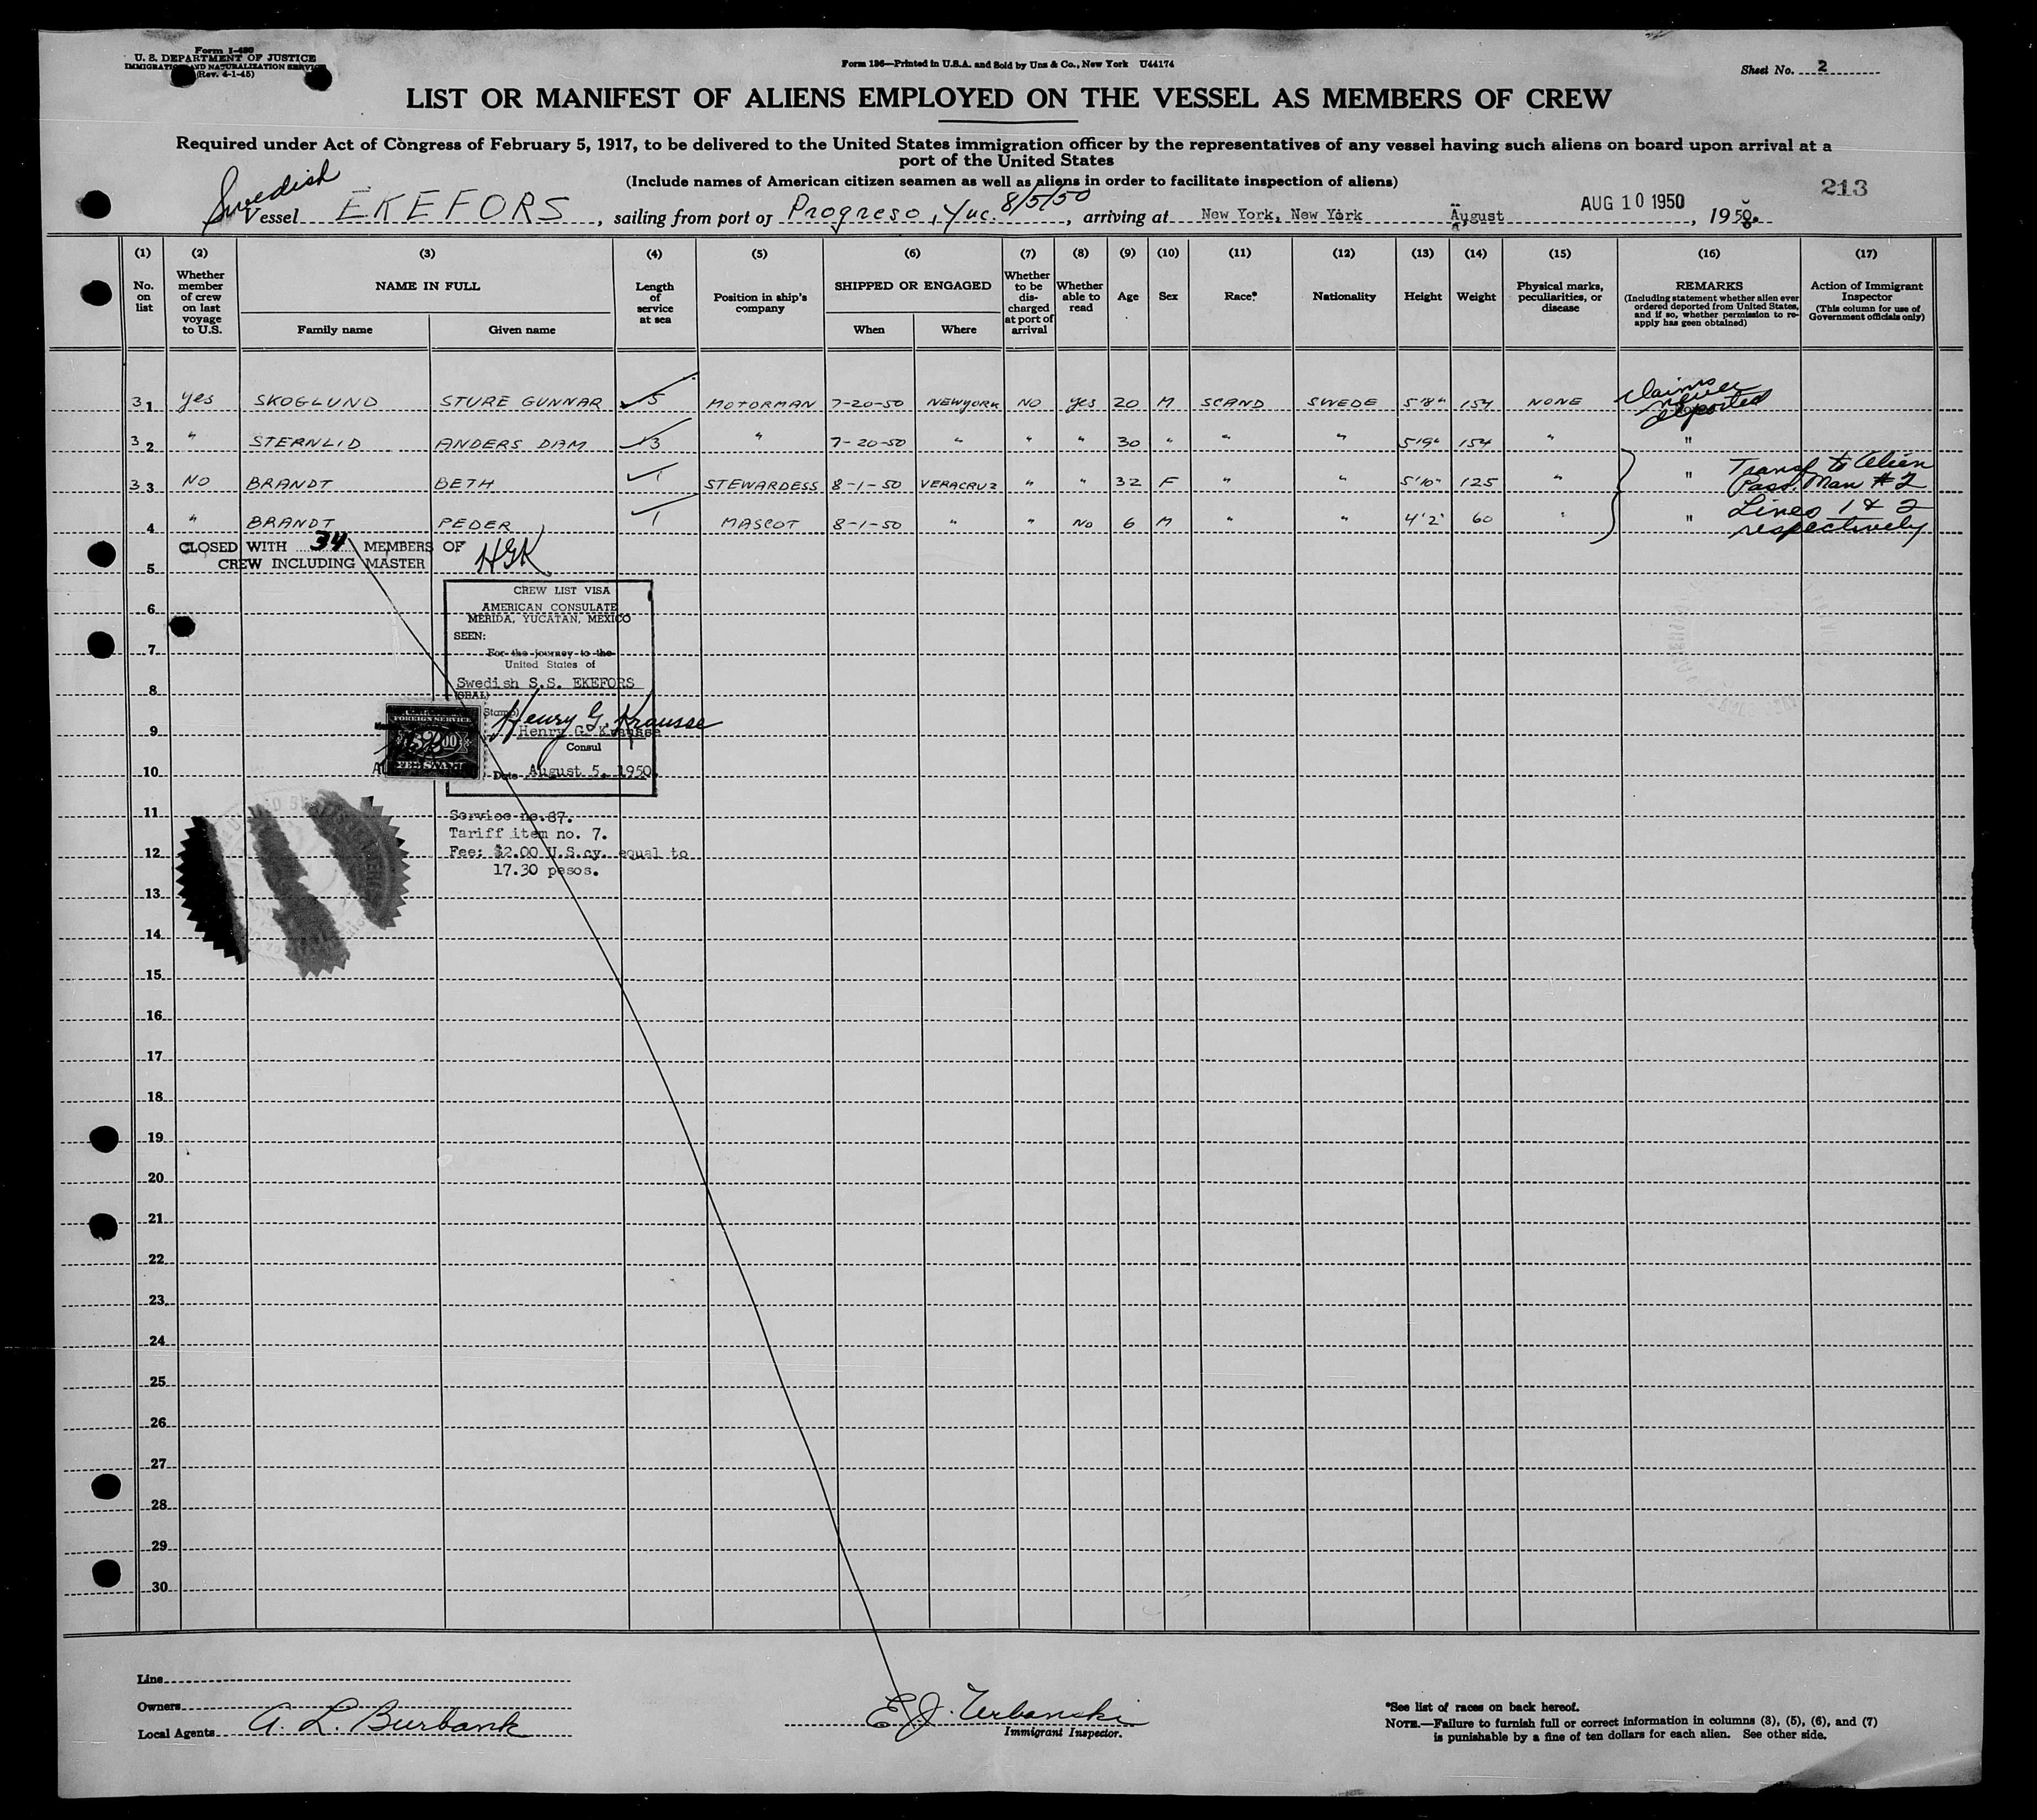 Form I-480
U. S. DEPARTMENT OF JUSTICE
IMMIGRATION AND NATURALIZATION SERVICE
(Rev. 4-1-45)
Form 136—Printed in U.S.A. and Sold by Unz & Co., New York U44174
Sheet No. 2
LIST OR MANIFEST OF ALIENS EMPLOYED ON THE VESSEL AS MEMBERS OF CREW
Required under Act of Congress of February 5, 1917, to be delivered to the United States immigration officer by the representatives of any vessel having such aliens on board upon arrival at a
port of the United States
(Include names of American citizen seamen as well as aliens in order to facilitate inspection of aliens)
213
Swedish
Vessel EKEFORS, sailing from port of Progreso, Yuc. 8/5/50, arriving at New York, New York August AUG 10 1950, 1950.
(1) (2) (3) (4) (5) (6) (7) (8) (9) (10) (11) (12) (13) (14) (15) (16) (17)
No. on list
Whether member of crew on last voyage to U.S.
NAME IN FULL
Family name
Given name
Length of service at sea
Position in ship's company
SHIPPED OR ENGAGED
When
Where
Whether to be discharged at port of arrival
Whether able to read
Age
Sex
Race*
Nationality
Height
Weight
Physical marks, peculiarities, or disease
REMARKS
(Including statement whether alien ever ordered deported from United States, and if so, whether permission to re-apply has geen obtained)
Action of Immigrant Inspector
(This column for use of Government officials only)
31 yes SKOGLUND STURE GUNNAR 5 MOTORMAN 7-20-50 NEWYORK NO yes 20 M SCAND SWEDE 5'8" 154 NONE Claims never deported
32 " STERNLID ANDERS DIAM 13 " 7-20-50 " " " 30 " " " 5'9" 154 " "
33 NO BRANDT BETH 1 STEWARDESS 8-1-50 VERACRUZ " " 32 F " " 5'10" 125 " " Transf. to Alien Pass. Man #2
4 " BRANDT PEDER 1 MASCOT 8-1-50 " " No 6 M " " 4'2" 60 " " Lines 1 & 2 respectively
CLOSED WITH 34 MEMBERS OF
CREW INCLUDING MASTER
HGK
5
CREW LIST VISA
AMERICAN CONSULATE
MERIDA, YUCATAN, MEXICO
6
SEEN:
7
For the journey to the
United States of
Swedish S.S. EKEFORS
8
(SEAL)
Stamp)
FOREIGN SERVICE
$2.00
FEE STAMP
Henry G. Krausse
9
Henry G. Krausse
Consul
10
Date August 5, 1950
11
Service no.87.
Tariff item no. 7.
12
Fee: $2.00 U.S.cy. equal to
17.30 pesos.
13
14
15
16
17
18
19
20
21
22
23
24
25
26
27
28
29
30
Line
Owners
Local Agents A. L. Burbank
E. J. Urbanski
Immigrant Inspector.
*See list of races on back hereof.
NOTE.—Failure to furnish full or correct information in columns (3), (5), (6), and (7)
is punishable by a fine of ten dollars for each alien. See other side.